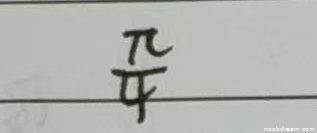 π/4
noobdream.com